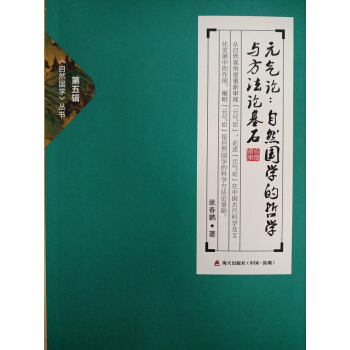 元气论：自然国学的哲学
与方法论基石
从自然观角度重新审视「元气论」，论述「元气论」在中国古代科学及文
化发展中的作用，阐明「元气论」是自然国学的科学方法论基础。
姚春鹏·著
海天出版社（中国·深圳）
第五辑
《自然国学》丛书